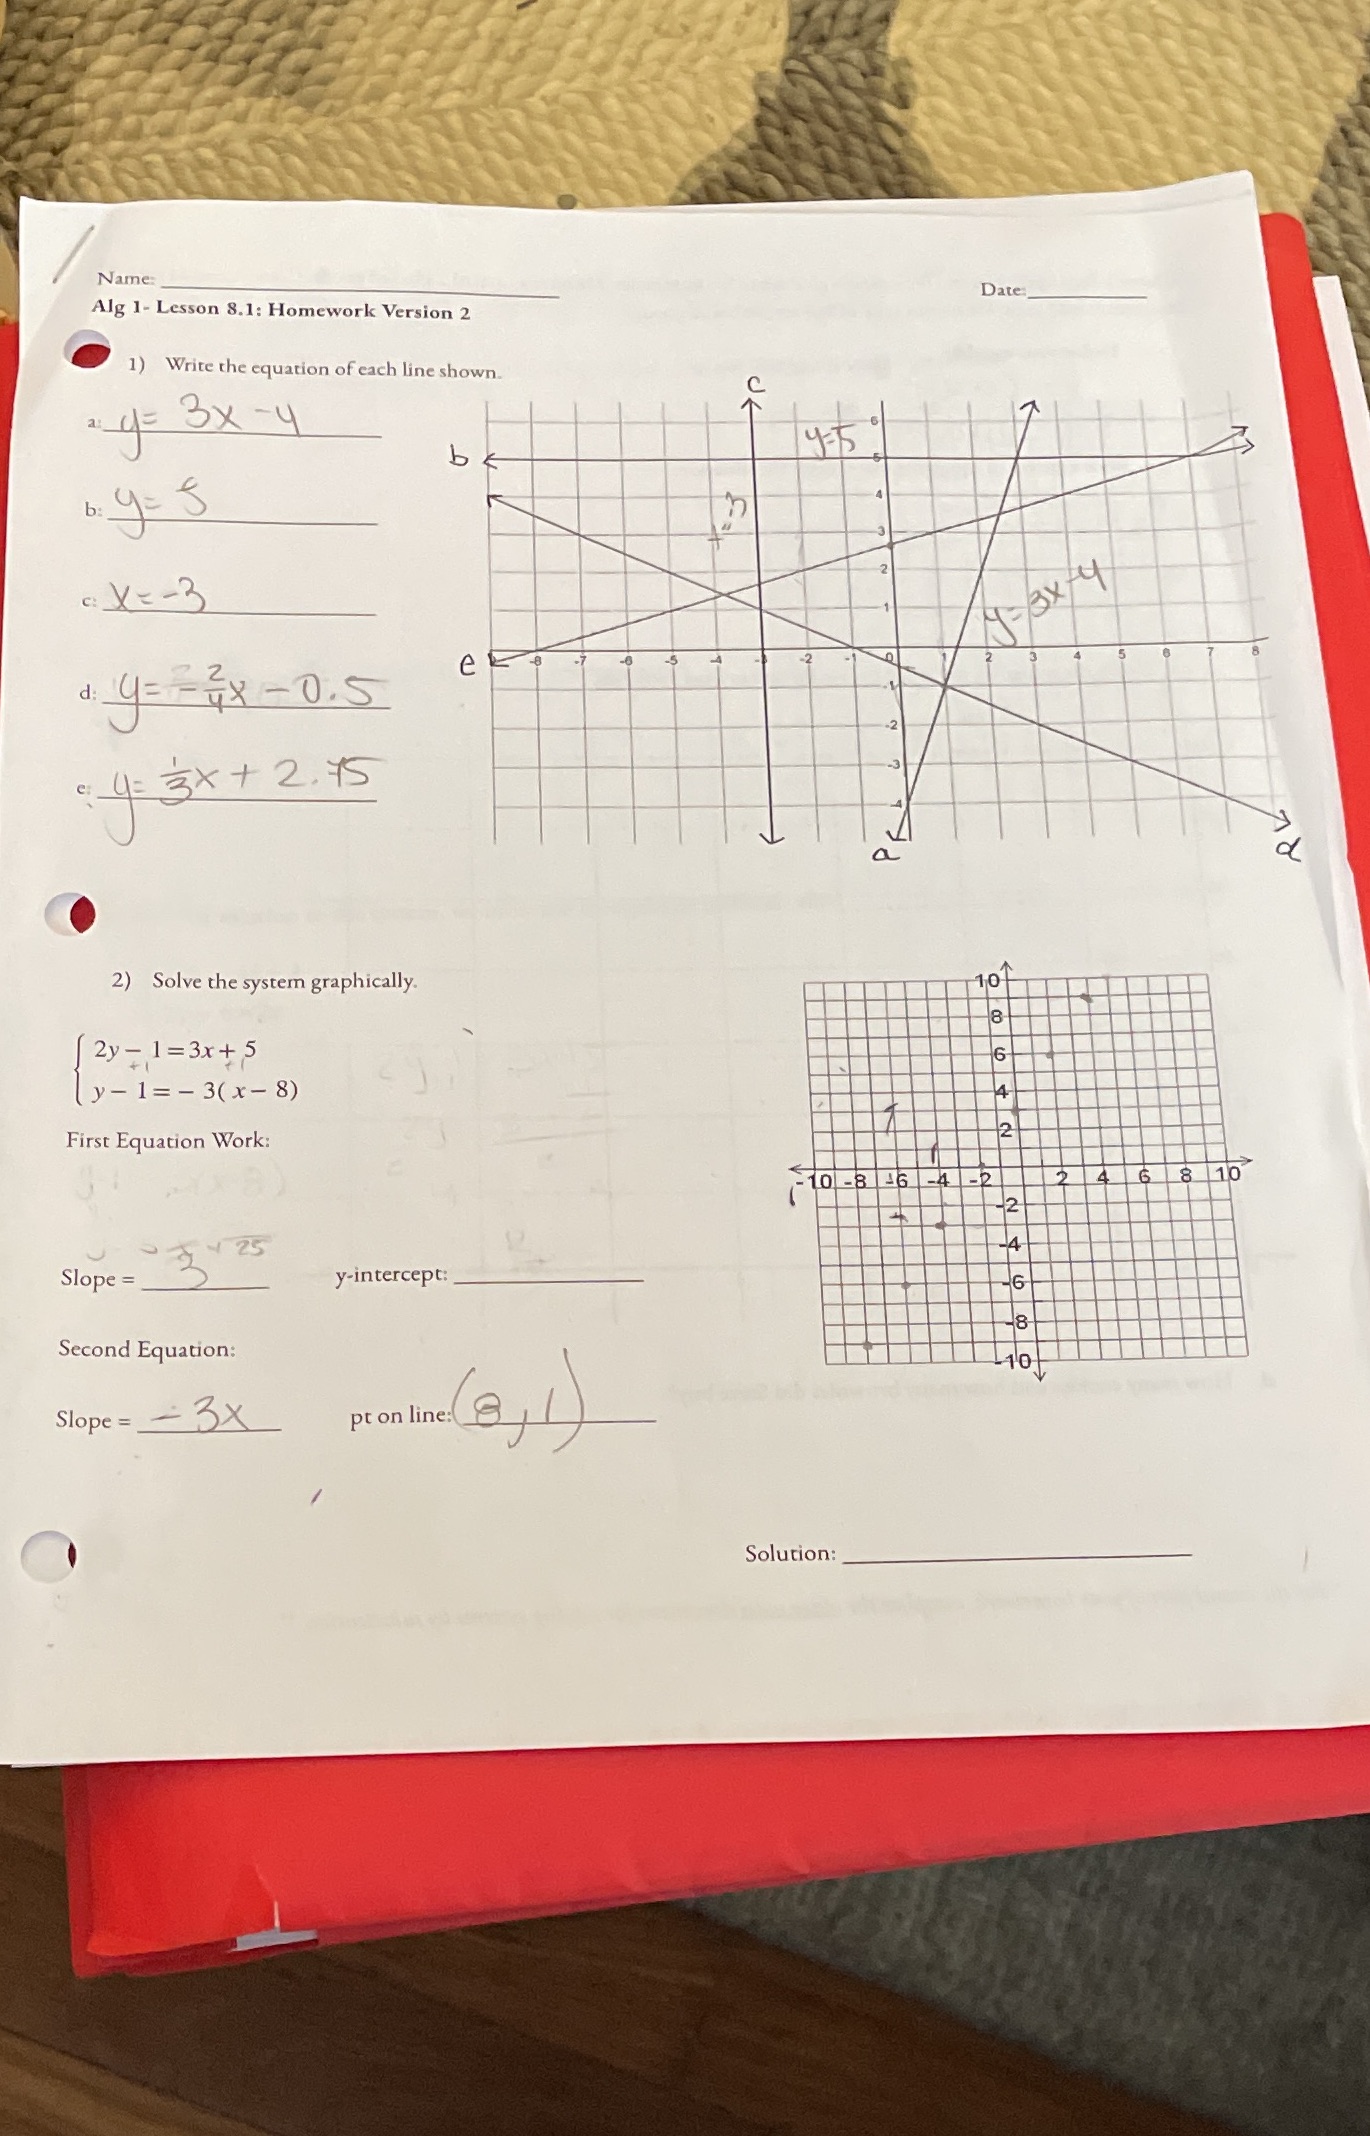 Name:
Date:
Alg 1- Lesson 8.1: Homework Version 2
1) Write the equation of each line shown.
a: y= 3x -4
b: y= 5
c: x= -3
d: y= -2/4x -0.5
e: y= 1/3x + 2.75
c
b
e
a
d
y=5
y=3x-4
6
5
4
3
2
1
-8 -7 -6 -5 -4 -3 -2 -1 0 1 2 3 4 5 6 7 8
-1
-2
-3
-4
2) Solve the system graphically.
2y - 1 = 3x + 5
+1 +1
y - 1 = - 3( x - 8)
First Equation Work:
Slope = 3
y-intercept:
Second Equation:
Slope = -3x
pt on line: (8,1)
10
8
6
4
2
-10 -8 -6 -4 -2 2 4 6 8 10
-2
-4
-6
-8
-10
Solution: